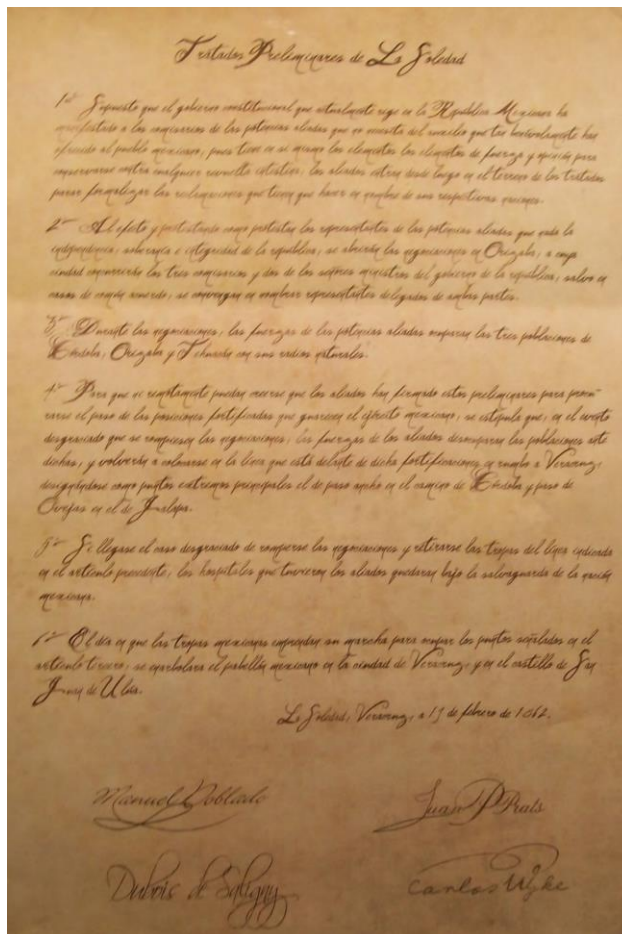 Tratados Preliminares de La Soledad
1º Supuesto que el gobierno constitucional que actualmente rige en la República Mexicana ha
manifestado a los comisarios de las potencias aliadas que no necesita del auxilio que tan benévolamente han
ofrecido al pueblo mexicano, pues tiene en sí mismo los elementos los elementos de fuerza y opinión para
conservarse contra cualquier revuelta intestina, los aliados entran desde luego en el terreno de los tratados
para formalizar las reclamaciones que tienen que hacer en nombre de sus respectivas naciones.
2º Al efecto y protestando como protestan los representantes de las potencias aliadas que nada la
independencia, soberanía e integridad de la república, se abrirán las negociaciones en Orizaba, a cuya
ciudad concurrirán los tres comisarios y dos de los señores ministros del gobierno de la república, salvo en
casos de común acuerdo, se convengan en nombrar representantes delegados de ambas partes.
3º Durante las negociaciones, las fuerzas de las potencias aliadas ocuparan las tres poblaciones de
Córdoba, Orizaba y Tehuacán con sus radios naturales.
4º Para que ni remotamente puedan creerse que los aliados han firmado estos preliminares para procu-
rarse el paso de las posiciones fortificadas que guarecen el ejército mexicano, se estipula que, en el evento
desgraciado que se rompiesen las negociaciones, las fuerzas de los aliados desocuparan las poblaciones ante
dichas, y volverán a colocarse en la línea que está delante de dicha fortificaciones en rumbo a Veracruz,
designándose como puntos extremos principales el de paso ancho en el camino de Córdoba y paso de
Ovejas en el de Jalapa.
5º Si llegase el caso desgraciado de romperse las negociaciones y retirarse las tropas del línea indicada
en el artículo precedente, los hospitales que tuvieron los aliados quedaran bajo la salvaguarda de la nación
mexicana.
6º El día en que las tropas mexicanas emprendan su marcha para ocupar los puntos señalados en el
artículo tercero, se enarbolara el pabellón mexicano en la ciudad de Veracruz, y en el castillo de San
Juan de Ulúa.
La Soledad, Veracruz, a 19 de febrero de 1862.
Manuel Doblado
Juan P Prats
Dubois de Saligny
Carlos Wyke